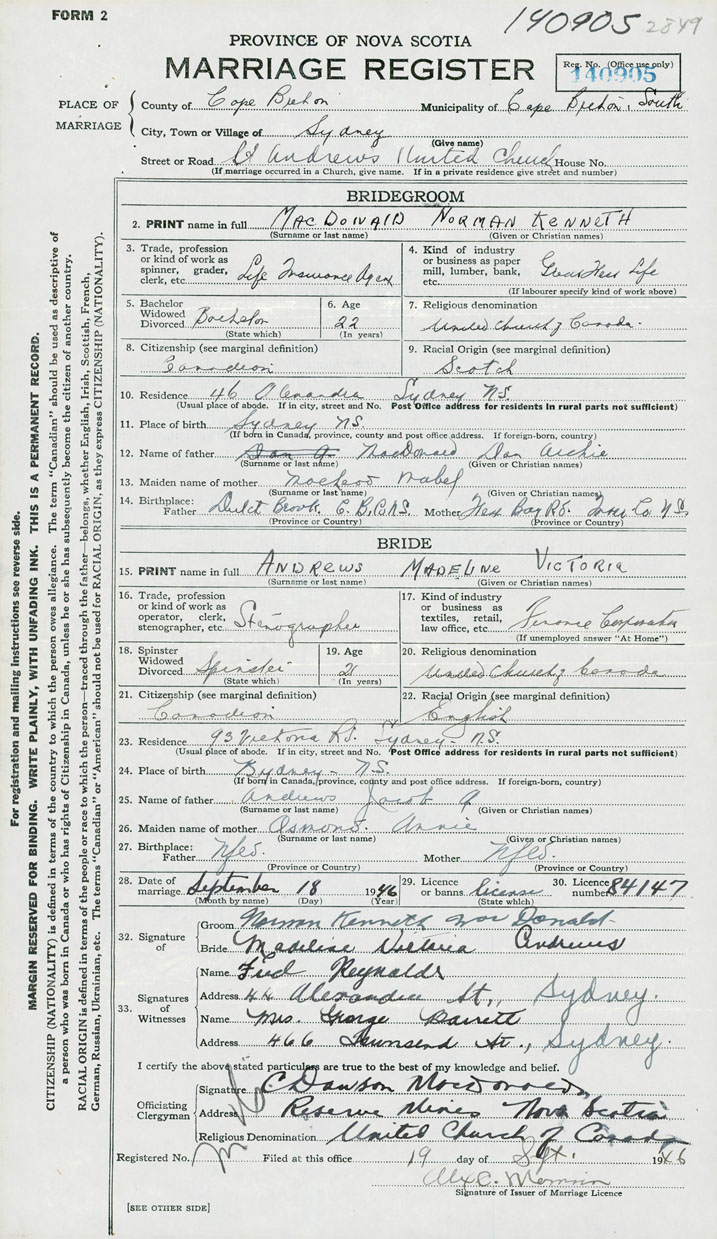 FORM 2
140905 2849
PROVINCE OF NOVA SCOTIA
MARRIAGE REGISTER
Reg. No. (Office use only)
140905
PLACE OF MARRIAGE
County of Cape Breton Municipality of Cape Breton South
City, Town or Village of Sydney
(Give name)
Street or Road St Andrews United Church House No.
(If marriage occurred in a Church, give name. If in a private residence give street and number)
BRIDEGROOM
2. PRINT name in full MACDONALD NORMAN KENNETH
(Surname or last name) (Given or Christian names)
3. Trade, profession or kind of work as spinner, grader, clerk, etc. Life Insurance Agent
4. Kind of industry or business as paper mill, lumber, bank, etc. Life
(If labourer specify kind of work above)
5. Bachelor Widowed Divorced Bachelor
(State which)
6. Age 22
(In years)
7. Religious denomination
United Church of Canada
8. Citizenship (see marginal definition)
Canadian
9. Racial Origin (see marginal definition)
Scotch
10. Residence 46 Sydney N.S.
(Usual place of abode. If in city, street and No. Post Office address for residents in rural parts not sufficient)
11. Place of birth Sydney N.S.
(If born in Canada, province, county and post office address. If foreign-born, country)
12. Name of father MacDonald Dan Archie
(Surname or last name) (Given or Christian names)
13. Maiden name of mother MacLeod Mabel
(Surname or last name) (Given or Christian names)
14. Birthplace: Father Brook, C.B.Co N.S. Mother West Bay Rd. Inver Co N.S.
(Province or Country) (Province or Country)
BRIDE
15. PRINT name in full ANDREWS MADELINE VICTORIA
(Surname or last name) (Given or Christian names)
16. Trade, profession or kind of work as operator, clerk, stenographer, etc. Stenographer
17. Kind of industry or business as textiles, retail, law office, etc. Corporation
(If unemployed answer "At Home")
18. Spinster Widowed Divorced Spinster
(State which)
19. Age 21
(In years)
20. Religious denomination
United Church of Canada
21. Citizenship (see marginal definition)
Canadian
22. Racial Origin (see marginal definition)
English
23. Residence 93 Victoria Rd. Sydney - N.S.
(Usual place of abode. If in city, street and No. Post Office address for residents in rural parts not sufficient)
24. Place of birth Sydney - N.S.
(If born in Canada, province, county and post office address. If foreign-born, country)
25. Name of father Andrews Jacob A
(Surname or last name) (Given or Christian names)
26. Maiden name of mother Osmond Annie
(Surname or last name) (Given or Christian names)
27. Birthplace: Father Nfld. Mother Nfld.
(Province or Country) (Province or Country)
28. Date of marriage September 18 1946
(Month by name) (Day) (Year)
29. Licence or banns license
(State which)
30. Licence number 84147
32. Signature of
Groom Norman Kenneth MacDonald
Bride Madeline Victoria Andrews
33. Signatures of Witnesses
Name Fred Reynolds
Address 44 Alexandra St., Sydney.
Name Mrs. George Barrett
Address 466 Townsend St., Sydney.
I certify the above stated particulars are true to the best of my knowledge and belief.
Officiating Clergyman
Signature C Dawson Macdonald
Address Reserve Mines Nova Scotia
Religious Denomination United Church of Canada
Registered No. Filed at this office 19 day of Sept. 1946
Alex C.
Signature of Issuer of Marriage Licence
[SEE OTHER SIDE]
For registration and mailing instructions see reverse side.
MARGIN RESERVED FOR BINDING. WRITE PLAINLY, WITH UNFADING INK. THIS IS A PERMANENT RECORD.
CITIZENSHIP (NATIONALITY) is defined in terms of the country to which the person owes allegiance. The term "Canadian" should be used as descriptive of
a person who was born in Canada or who has rights of Citizenship in Canada, unless he or she has subsequently become the citizen of another country.
RACIAL ORIGIN is defined in terms of the people or race to which the person—traced through the father—belongs, whether English, Irish, Scottish, French,
German, Russian, Ukrainian, etc. The terms "Canadian" or "American" should not be used for RACIAL ORIGIN, as they express CITIZENSHIP (NATIONALITY).